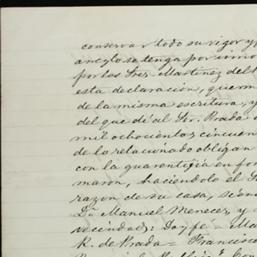 conservar todo su vigor y
por los Sres. Martinez del
esta declaracion, que
de la misma escritura, y
del que dé al Sor. Prada
mil ochocientos cincuen
de lo relacionado obligan
con la guarentigia en for
maron, haciendolo el S
razon de su casa, siendo
Dn. Manuel Meneces, y
vecindad: Doy fé = Ma
R. de Prada = Francisco